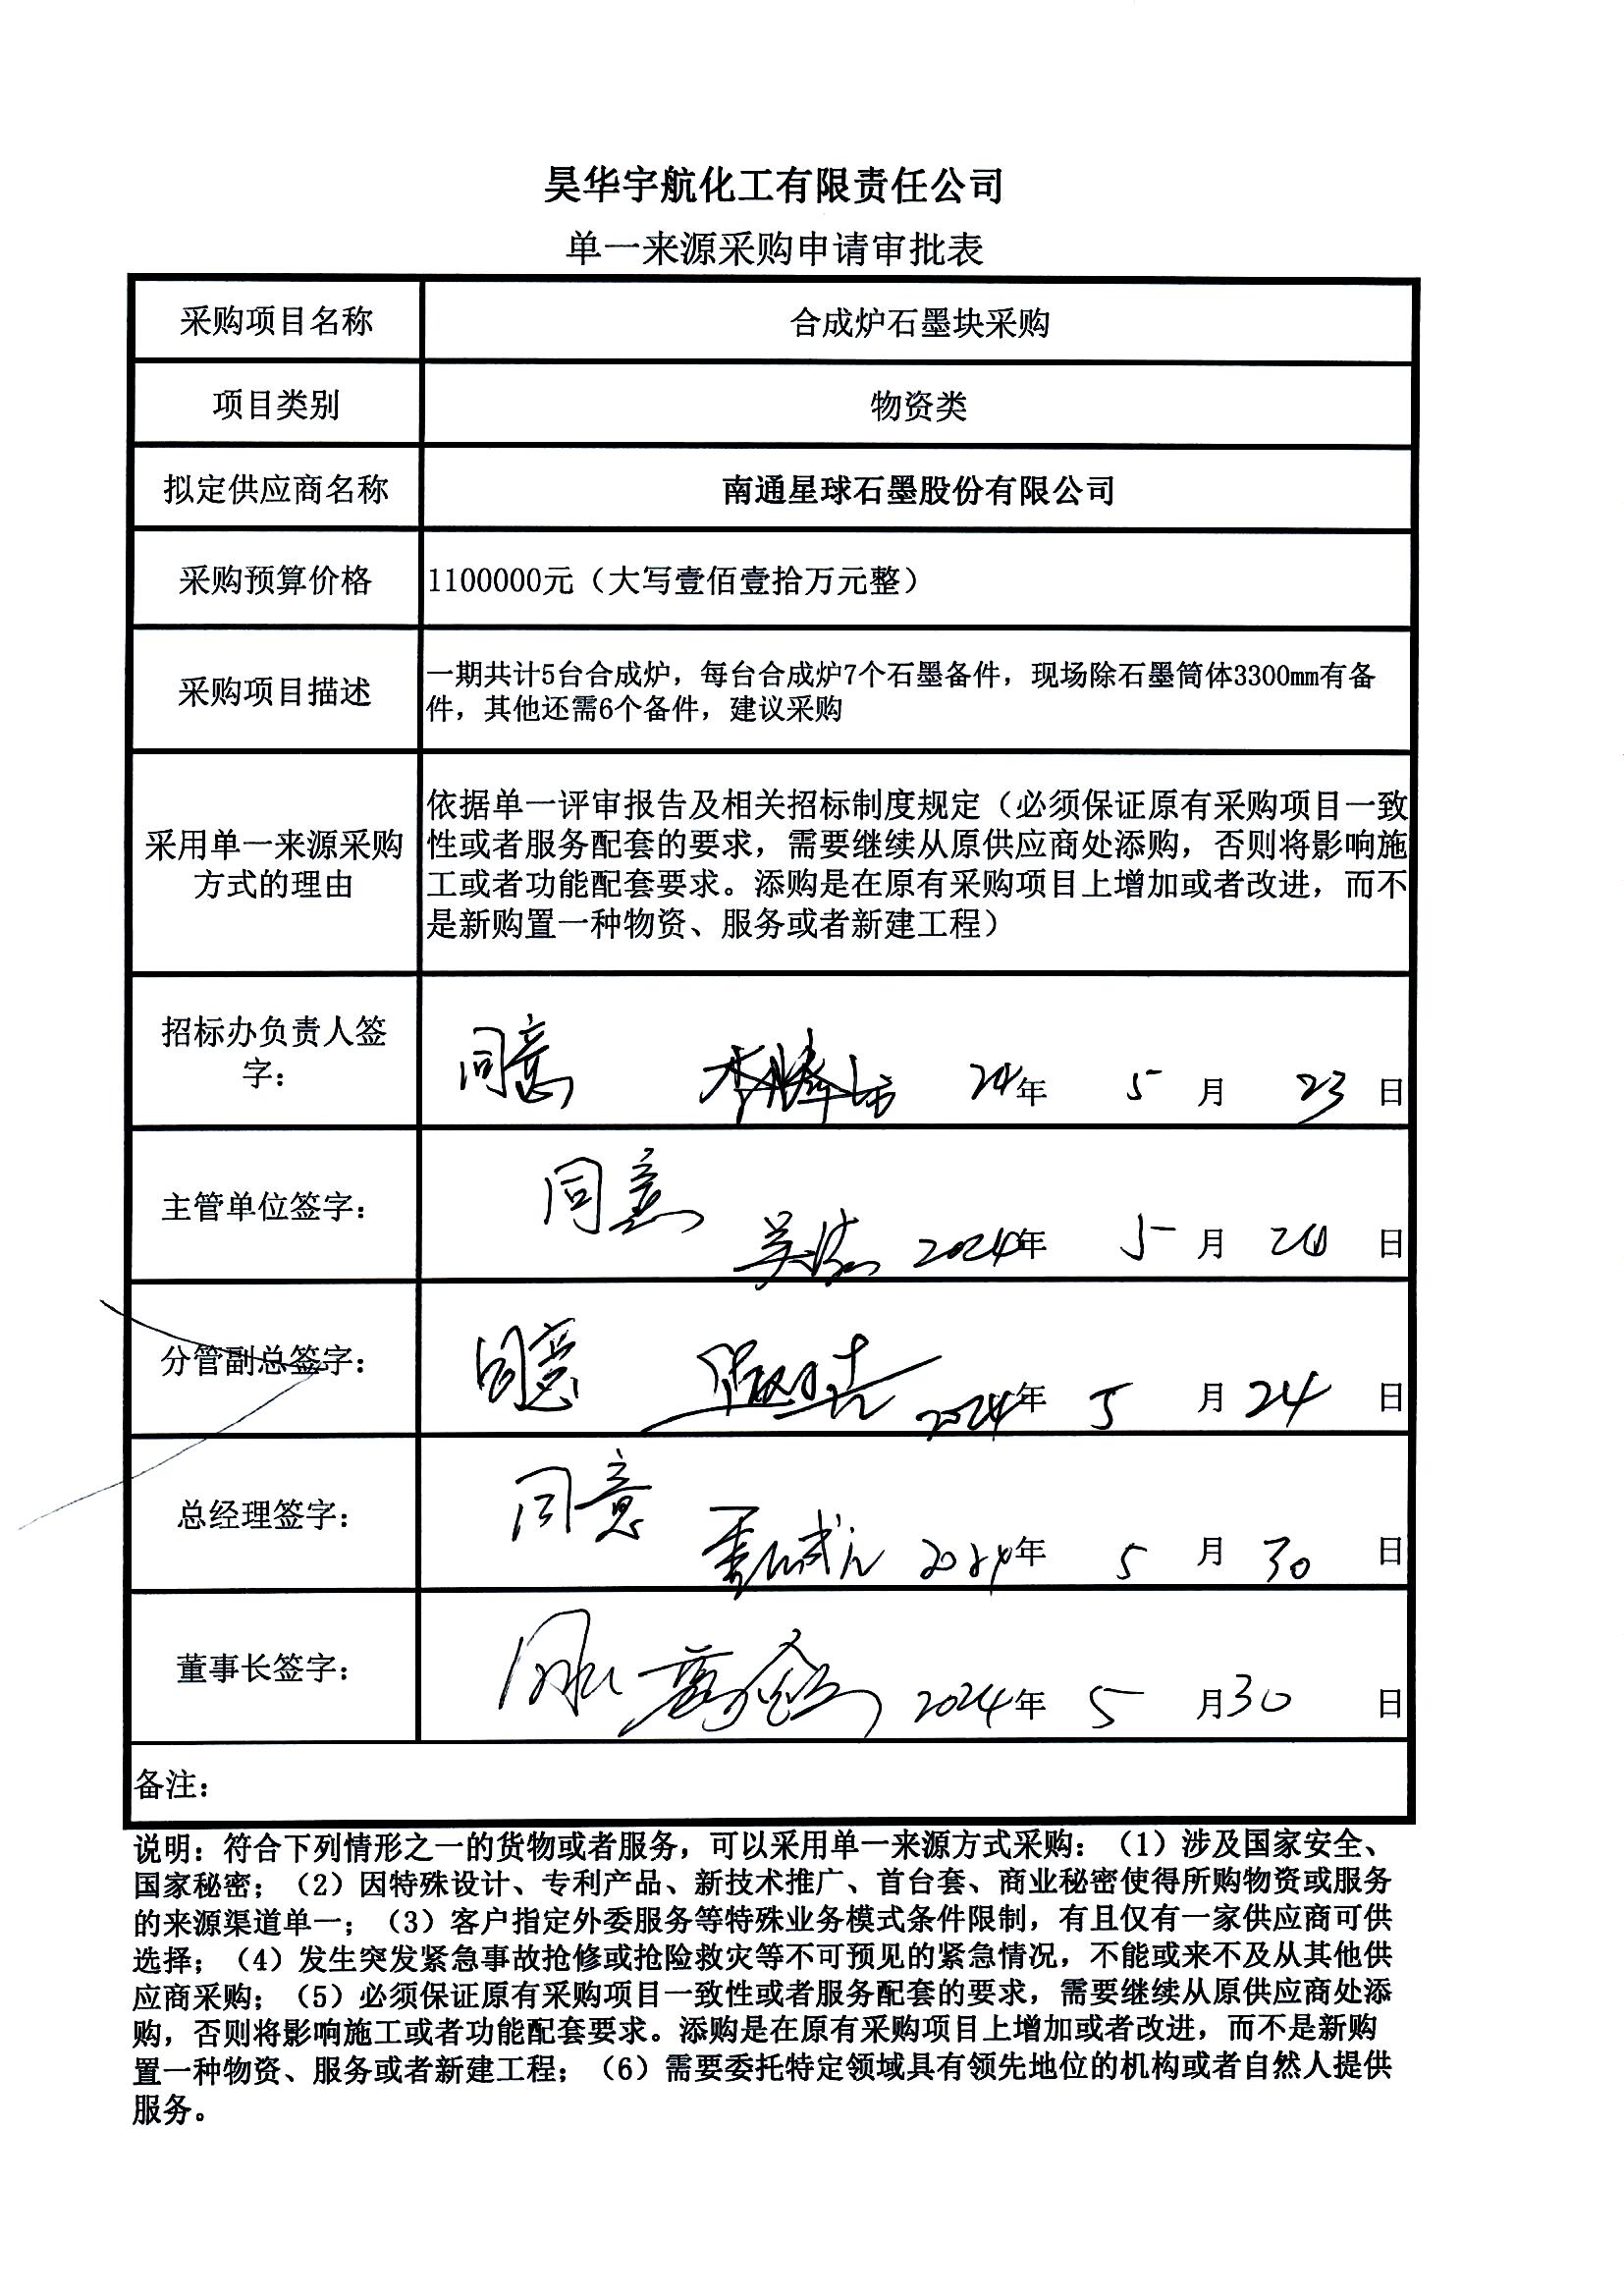 昊华宇航化工有限责任公司
单一来源采购申请审批表
采购项目名称
合成炉石墨块采购
项目类别
物资类
拟定供应商名称
南通星球石墨股份有限公司
采购预算价格
1100000元（大写壹佰壹拾万元整）
采购项目描述
一期共计5台合成炉，每台合成炉7个石墨备件，现场除石墨筒体3300mm有备
件，其他还需6个备件，建议采购
采用单一来源采购
方式的理由
依据单一评审报告及相关招标制度规定（必须保证原有采购项目一致
性或者服务配套的要求，需要继续从原供应商处添购，否则将影响施
工或者功能配套要求。添购是在原有采购项目上增加或者改进，而不
是新购置一种物资、服务或者新建工程）
招标办负责人签
字：
同意 24年 5月 23日
主管单位签字：
同意 2024年 5月 日
分管副总签字：
同意 2024年 5月 24日
总经理签字：
同意 2024年 5月 30日
董事长签字：
同意 2024年 5月 30日
备注：
说明：符合下列情形之一的货物或者服务，可以采用单一来源方式采购：（1）涉及国家安全、
国家秘密；（2）因特殊设计、专利产品、新技术推广、首台套、商业秘密使得所购物资或服务
的来源渠道单一；（3）客户指定外委服务等特殊业务模式条件限制，有且仅有一家供应商可供
选择；（4）发生突发紧急事故抢修或抢险救灾等不可预见的紧急情况，不能或来不及从其他供
应商采购；（5）必须保证原有采购项目一致性或者服务配套的要求，需要继续从原供应商处添
购，否则将影响施工或者功能配套要求。添购是在原有采购项目上增加或者改进，而不是新购
置一种物资、服务或者新建工程；（6）需要委托特定领域具有领先地位的机构或者自然人提供
服务。